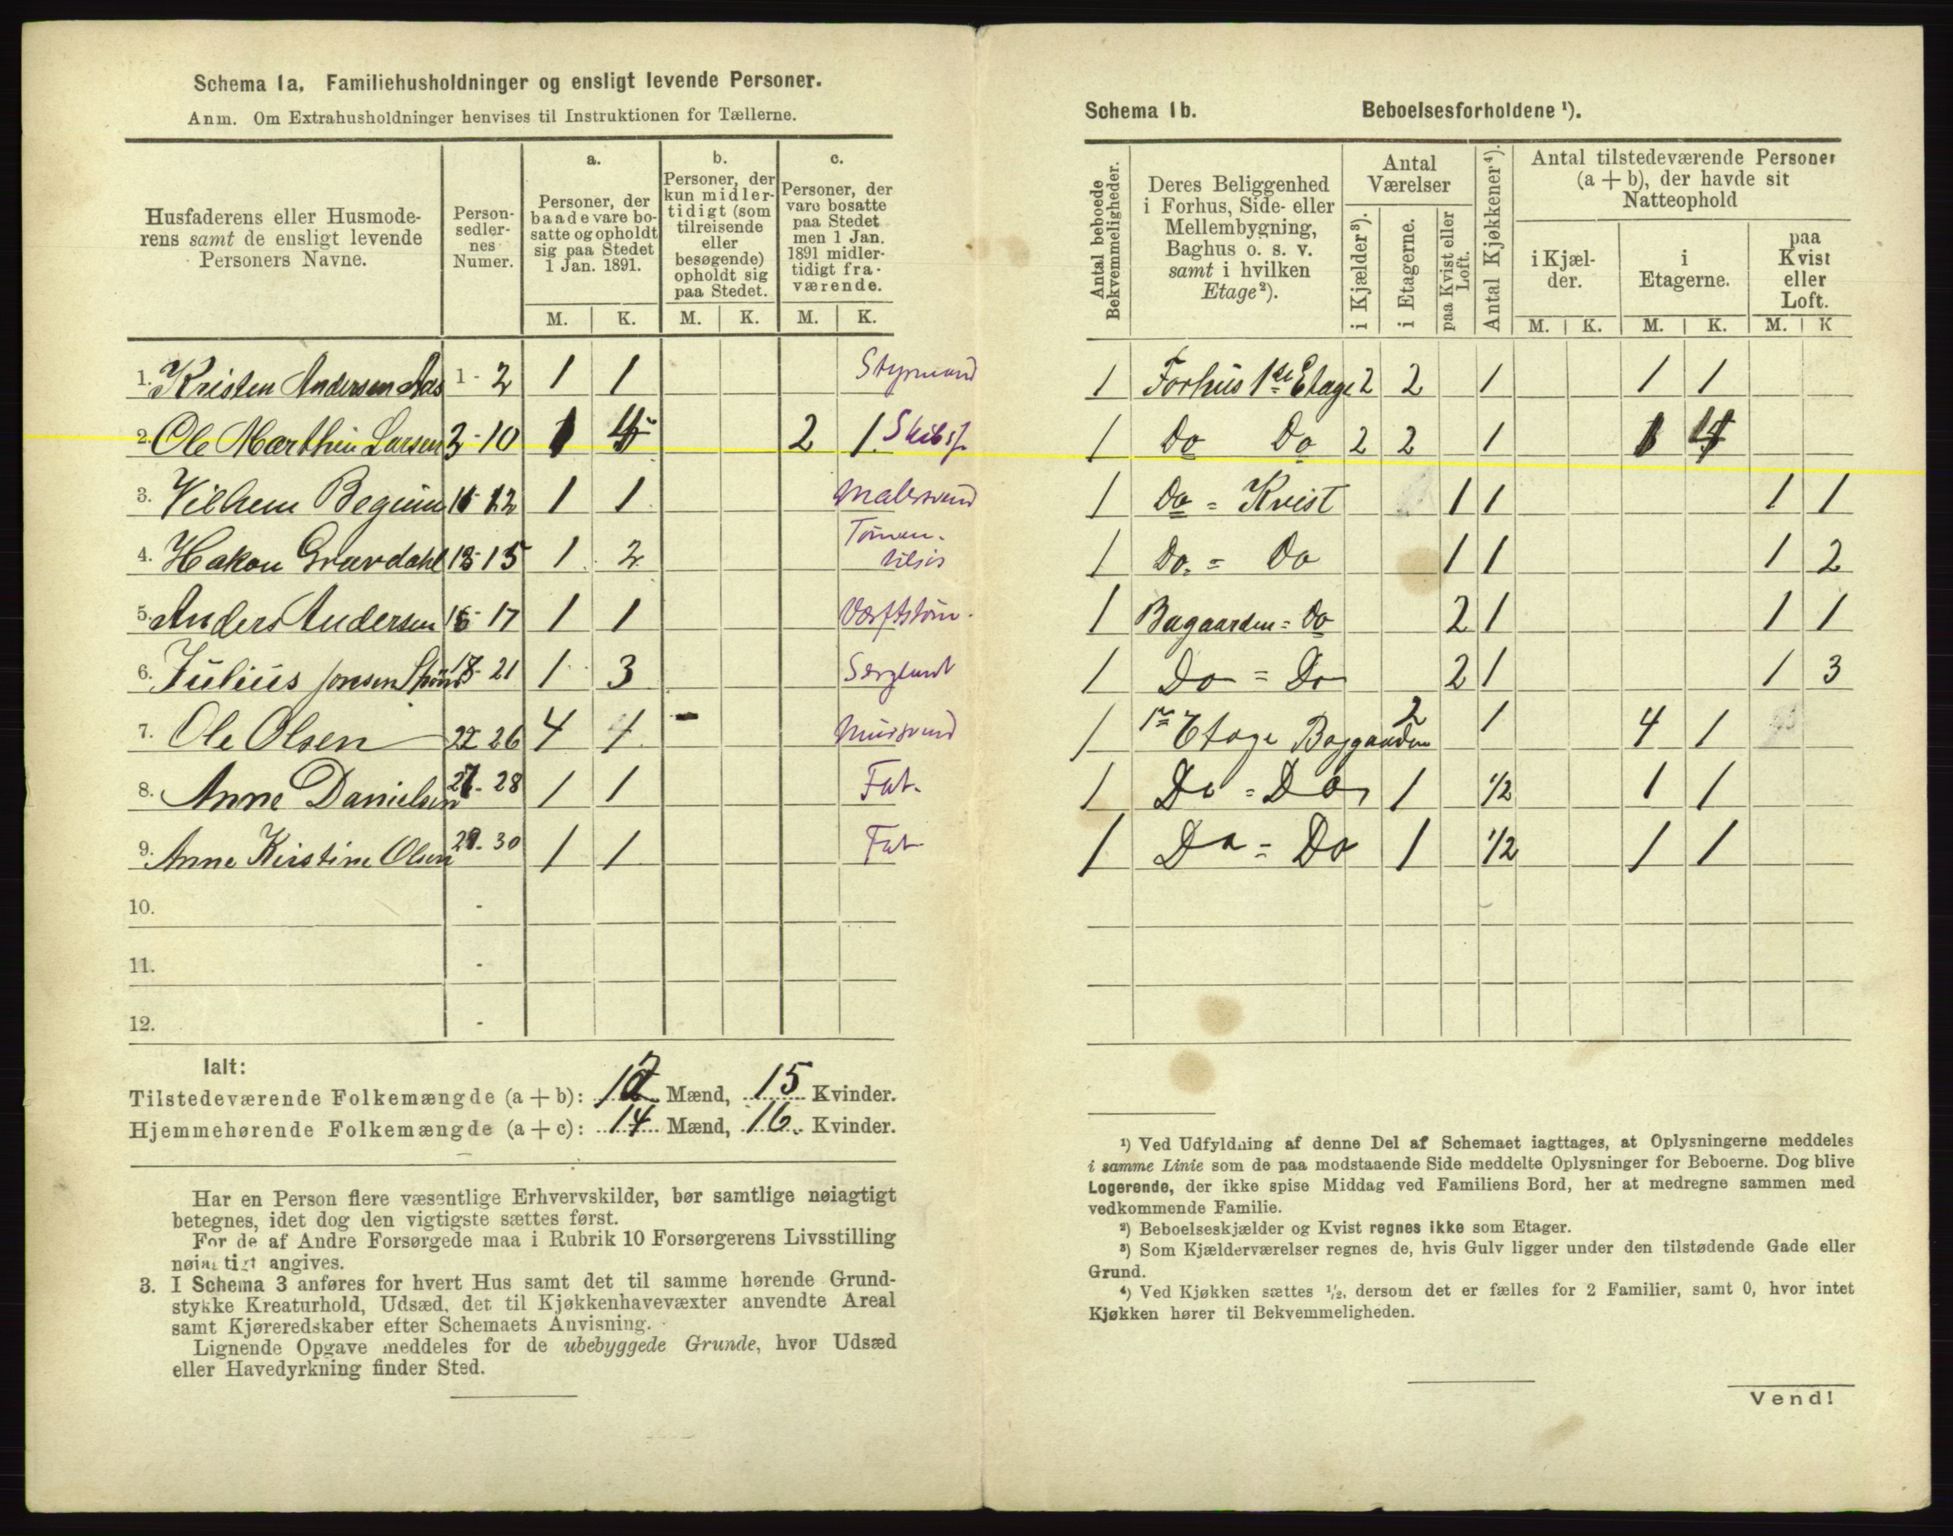 Schema 1a. Familiehusholdninger og ensligt levende Personer.
Anm. Om Extrahusholdninger henvises til Instruktionen for Tællerne.
Husfaderens eller Husmoderens samt de ensligt levende Personers Navne.
Personsedlernes Numer.
a. Personer, der baade vare bosatte og opholdt sig paa Stedet 1 Jan. 1891.
b. Personer, der kun midlertidigt (som tilreisende eller besøgende) opholdt sig paa Stedet.
c. Personer, der vare bosatte paa Stedet men 1 Jan. 1891 midlertidigt fraværende.
M. K. M. K. M. K.
1. Kristen Andersen Aas 1 - 2 1 1 Styrmand
2. Ole Marthin Larsen 3 - 10 1 4 2 1. Skibsf.
3. Vilhem 11 - 12 1 1 Malersvend
4. Hakon 13 - 15 1 2
5. Anders Andersen 16 - 17 1 1
6. Julius Jonsen 18 - 21 1 3
7. Ole Olsen 22 - 26 4 1
8. Anne Danielsen 27 - 28 1 1 Fat.
9. Anne Kirstine Olsen 29 - 30 1 1 Fat
10. -
11. -
12. -
Ialt:
Tilstedeværende Folkemængde (a + b): 12 Mænd, 15 Kvinder.
Hjemmehørende Folkemængde (a + c): 14 Mænd, 16 Kvinder.
Har en Person flere væsentlige Erhvervskilder, bør samtlige nøiagtigt
betegnes, idet dog den vigtigste sættes først.
For de af Andre Forsørgede maa i Rubrik 10 Forsørgerens Livsstilling
nøiagtigt angives.
3. I Schema 3 anføres for hvert Hus samt det til samme hørende Grund-
stykke Kreaturhold, Udsæd, det til Kjøkkenhavevæxter anvendte Areal
samt Kjøreredskaber efter Schemaets Anvisning.
Lignende Opgave meddeles for de ubebyggede Grunde, hvor Udsæd
eller Havedyrkning finder Sted.
Schema 1b. Beboelsesforholdene ¹).
Antal beboede Bekvemmeligheder.
Deres Beliggenhed i Forhus, Side- eller Mellembygning, Baghus o. s. v. samt i hvilken Etage²).
Antal Værelser
i Kjælder³). i Etagerne. paa Kvist eller Loft.
Antal Kjøkkener⁴).
Antal tilstedeværende Personer (a + b), der havde sit Natteophold
i Kjælder. i Etagerne. paa Kvist eller Loft.
M. K. M. K. M. K
1 Forhus 1ste Etage 2 2 1 1 1
1 Do Do 2 2 1 1 4
1 Do = Kvist 1 1 1 1
1 Do. = Do 1 1 1 2
1 Bagaarden = Do 2 1 1 1
1 Do = Do 2 1 1 3
1 1ste Etage Baggaarden 2 1 4 1
1 Do = Do 1 1/2 1 1
1 Do = Do 1 1/2 1 1
¹) Ved Udfyldning af denne Del af Schemaet iagttages, at Oplysningerne meddeles
i samme Linie som de paa modstaaende Side meddelte Oplysninger for Beboerne. Dog blive
Logerende, der ikke spise Middag ved Familiens Bord, her at medregne sammen med
vedkommende Familie.
²) Beboelseskjælder og Kvist regnes ikke som Etager.
³) Som Kjælderværelser regnes de, hvis Gulv ligger under den tilstødende Gade eller
Grund.
⁴) Ved Kjøkken sættes ½, dersom det er fælles for 2 Familier, samt 0, hvor intet
Kjøkken hører til Bekvemmeligheden.
Vend!